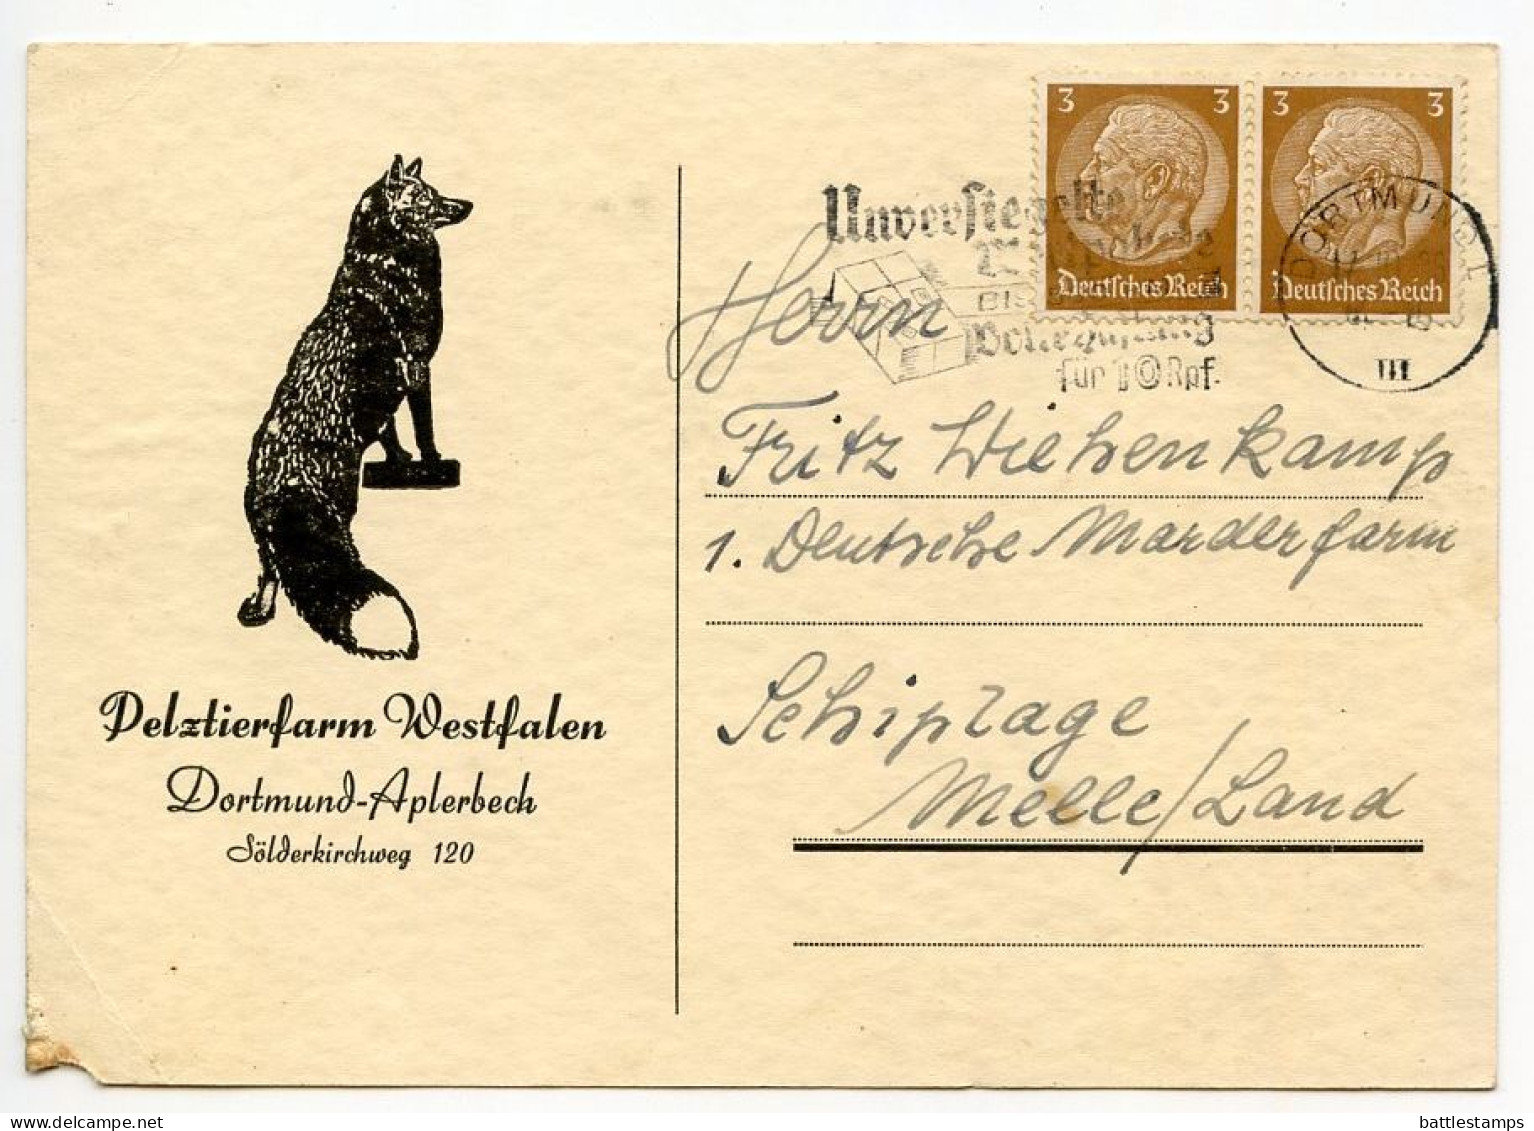 3 3
Deutsches Reich
3 3
Deutsches Reich
Unversiegelte
für 10 Rpf.
DORTMUND 1
III
Herrn
Fritz Wiehenkamp
1. Deutsche Marderfarm
Schiplage
Melle/Land
Pelztierfarm Westfalen
Dortmund-Aplerbeck
Sölderkirchweg 120
delcampe.net
battlestamps